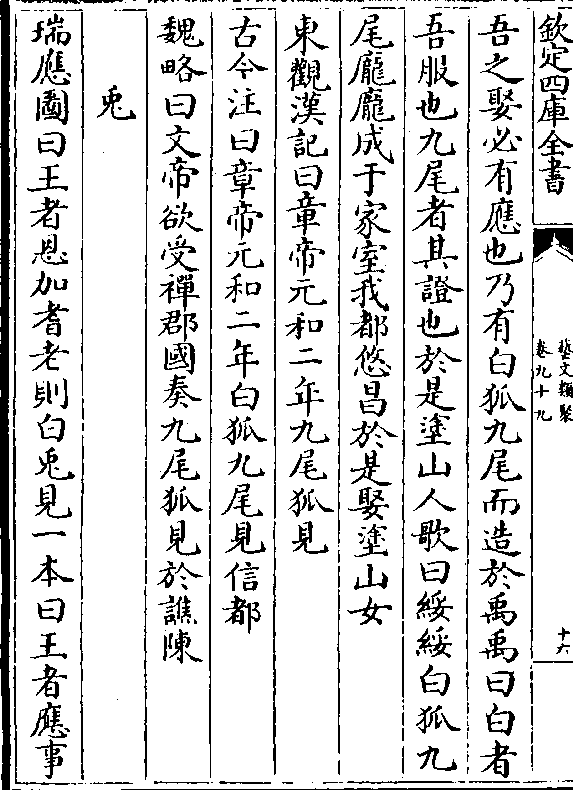 欽定四庫全書
藝文類聚
卷九十九
十六
吾之娶必有應也乃有白狐九尾而造於禹禹曰白者
吾服也九尾者其證也於是塗山人歌曰綏綏白狐九
尾龐龐成于家室我都攸昌於是娶塗山女
東觀漢記曰章帝元和二年九尾狐見
古今注曰章帝元和二年白狐九尾見信都
魏略曰文帝欲受禪郡國奏九尾狐見於譙陳
兎
瑞應圖曰王者恩加耆老則白兎見一本曰王者應事